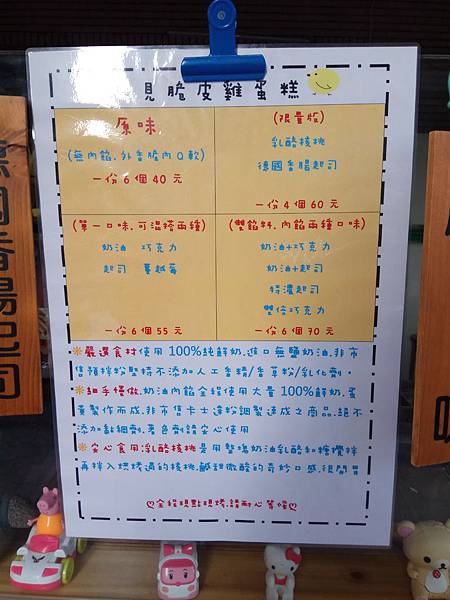 見脆皮雞蛋糕
原味
(無內餡.外香脆內Q軟)
一份6個40元
(限量版)
乳酪核桃
德國香腸起司
一份4個60元
(單一口味.可混搭兩種)
奶油 巧克力
起司 蔓越莓
一份6個55元
(雙餡料.內餡兩種口味)
奶油+巧克力
奶油+起司
特濃起司
雙倍巧克力
一份6個70元
※嚴選食材使用100%純鮮奶.進口無鹽奶油.非市
售預拌粉堅持不添加人工香精/香草粉/乳化劑。
※細手慢做.奶油內餡全程使用大量100%鮮奶.蛋
黃製作而成.非市售卡士達粉調製速成之商品.絕不
添加黏稠劑.著色劑請安心使用
※安心食用:乳酪核桃是用整塊奶油乳酪和糖攪拌
再拌入烘烤過的核桃.鹹甜微酸的奇妙口感.很開胃
♡全程現點現烤.請耐心等候♡
德國香腸起司